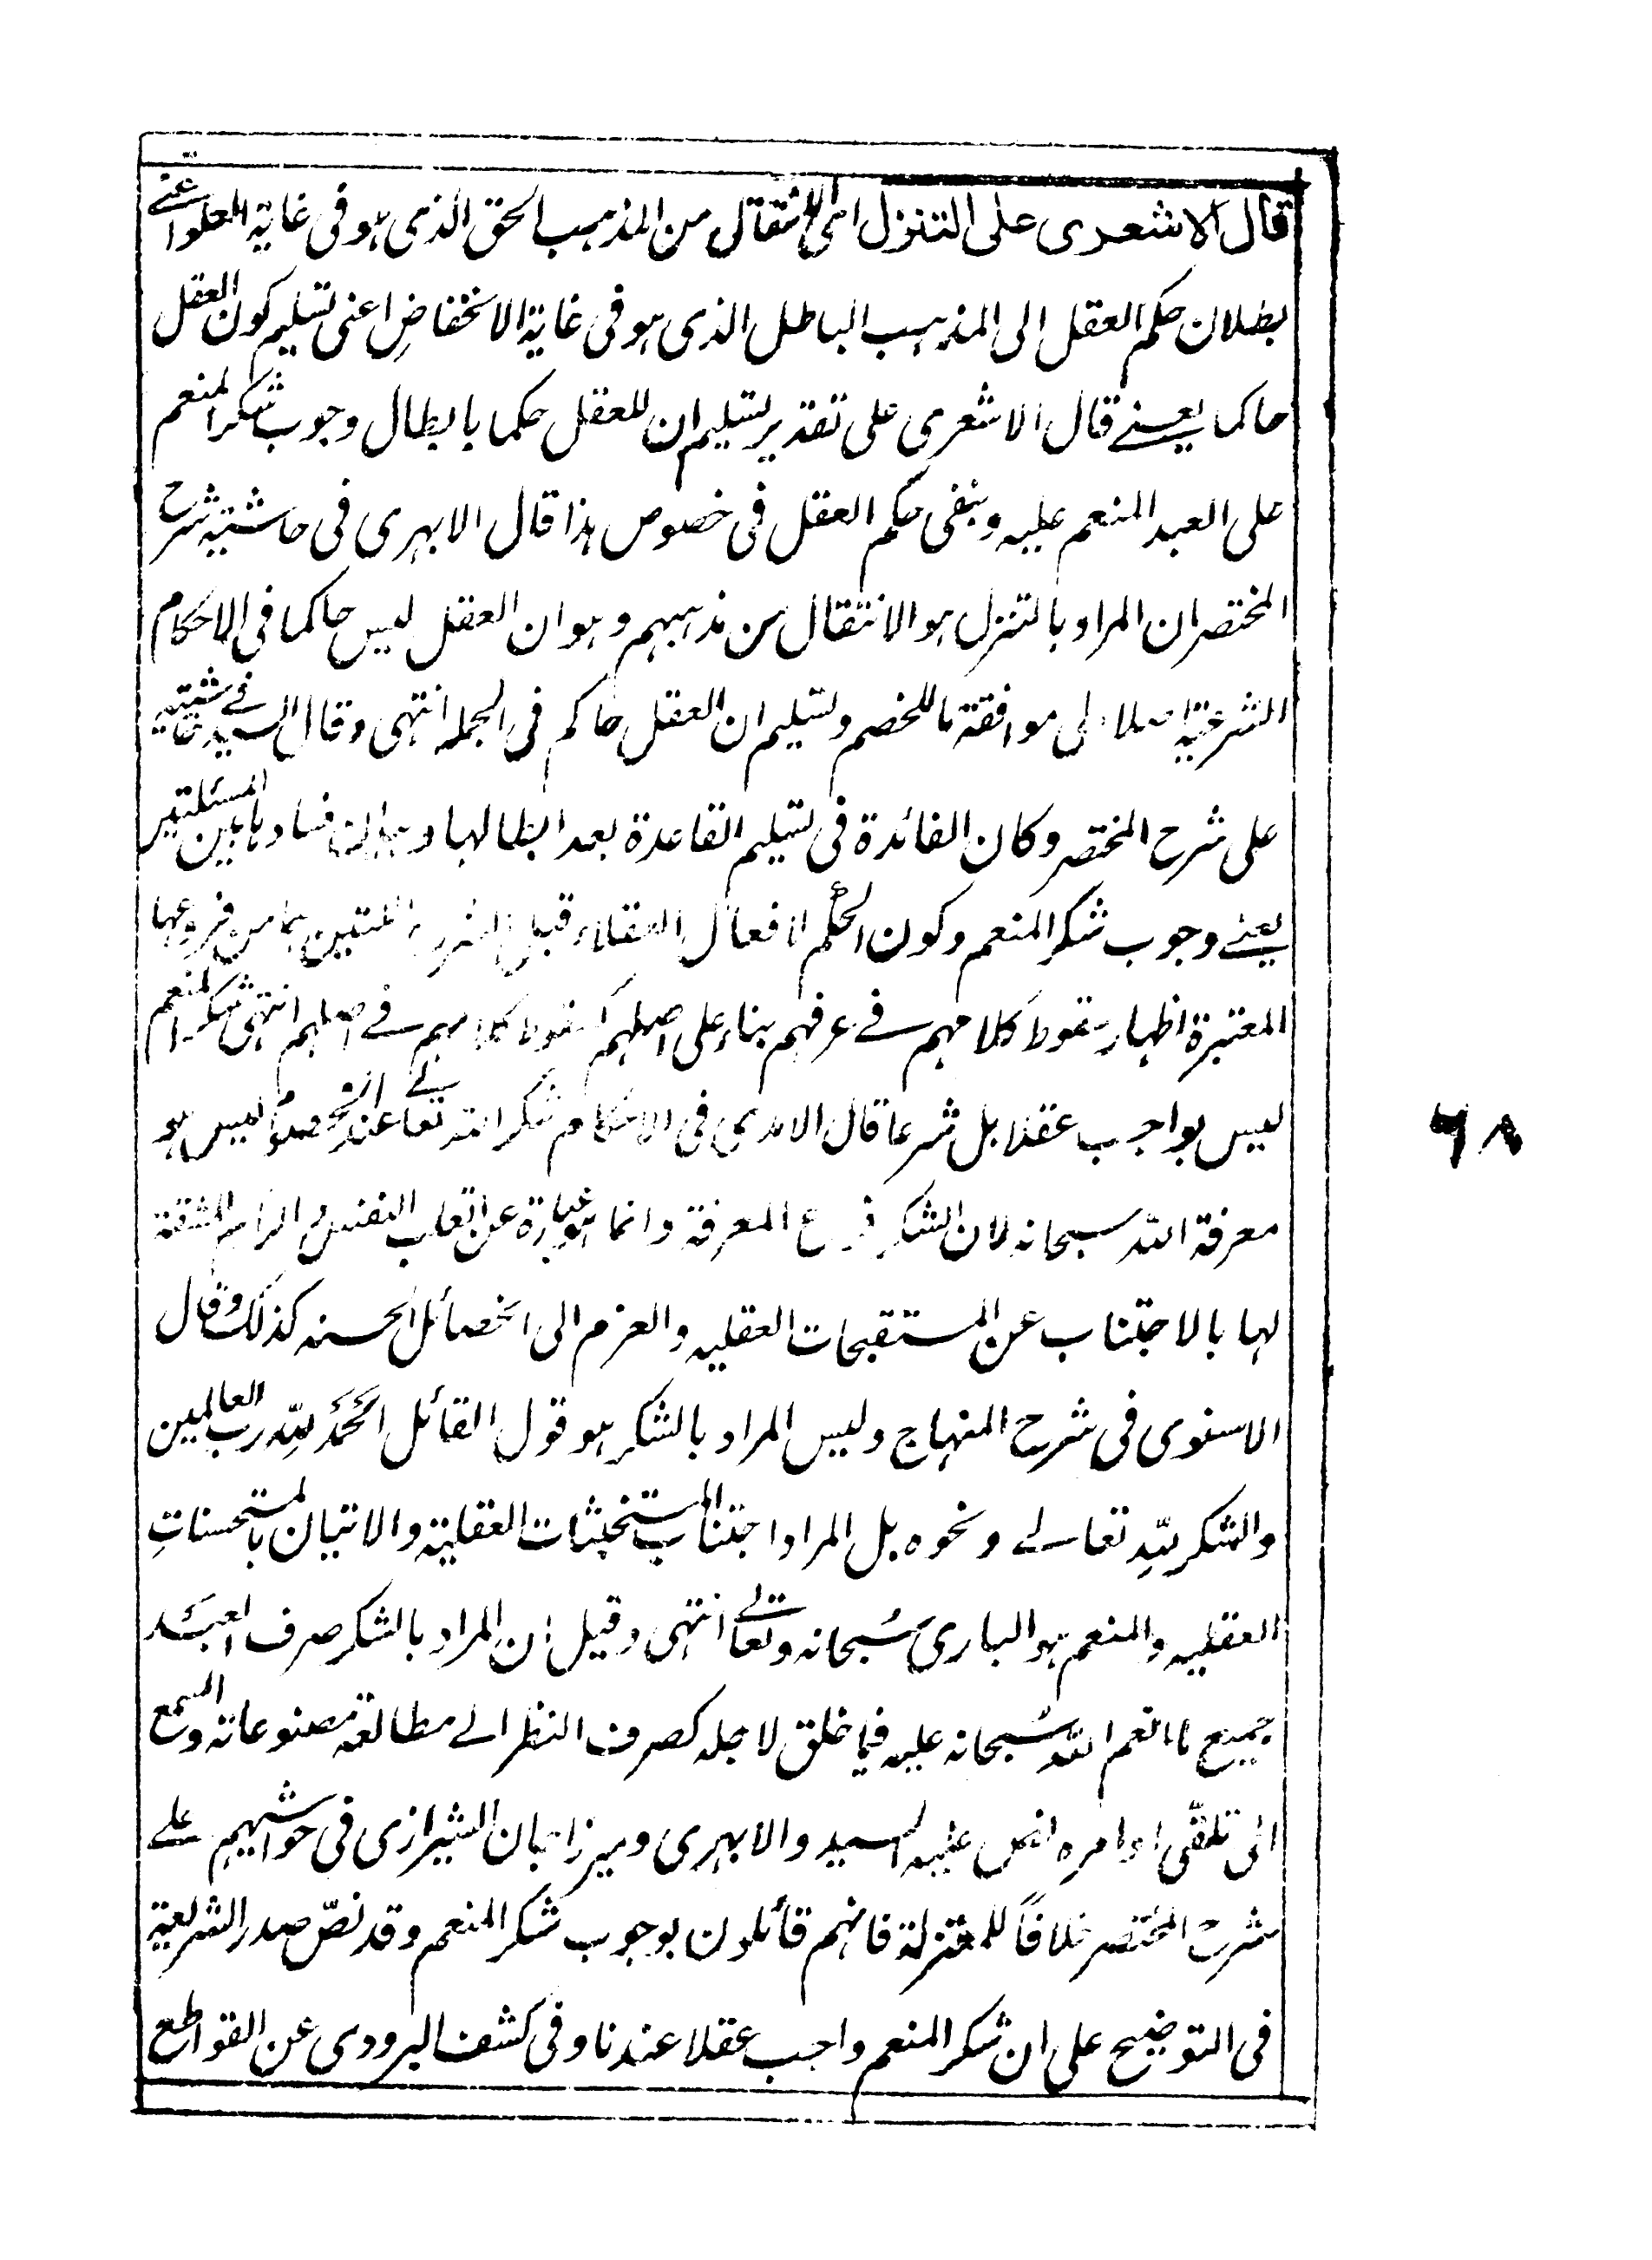 قال الاشعرى على التنزل اى الانتقال من المذهب الحق الذى هو فى غاية العلو اعنى
بطلان حكم العقل الى المذهب الباطل الذى هو فى غاية الانخفاض اعنى تسليم كون العقل
حاكما يعنى قال الاشعرى على تقدير تسليم ان للعقل حكما بابطال وجوب شكر المنعم
على العبد المنعم عليه وبنفى حكم العقل فى خصوص هذا قال الابهرى فى حاشية شرح
المختصر ان المراد بالتنزل هو الانتقال من مذهبهم وهو ان العقل ليس حاكما فى الاحكام
الشرعية اصلا الى موافقة ما للخصم وتسليم ان العقل حاكم فى الجملة انتهى وقال السيد فى حاشيته
على شرح المختصر وكان الفائدة فى تسليم القاعدة بعد ابطالها وبيان فسادها بين المسئلتين
يعنى وجوب شكر المنعم وكون الحكم لافعال العقلاء قبل الشرع اللتين هما من فروعها
المعتبرة اظهار سقوط كلامهم فى عرفهم بناء على اصلهم كسقوط كلامهم فى اصلهم انتهى شكر المنعم
ليس بواجب عقلا بل شرعا قال الامدى فى الاحكام شكر الله تعالى عند الخصوم ليس هو
معرفة الله سبحانه لان الشكر فرع المعرفة وانما هو عبارة عن اتعاب النفس والزام المشقة
لها بالاجتناب عن المستقبحات العقليه والعزم الى الخصائل الحسنه كذلك وقال
الاسنوى فى شرح المنهاج وليس المراد بالشكر هو قول القائل الحَمدُ لِلّه رب العالمين
والشكر للّهِ تعالى ونحوه بل المراد اجتناب المستخبثات العقلية والاتيان بالمستحسناتِ
العقليه والمنعم هو البارى سُبحانه وتعالى انتهى وقيل ان المراد بالشكر صرف العبد
جميع ما انعم الله سُبحانه عليه فيما خلق لاجله كصرف النظر الى مطالعة مصنوعاته والسمع
الى تلقّى اوامره نص عليه السيد والابهرى وميرزاجان الشيرازى فى حواشيهم على
شرح المختصر خلافاً للمعتزلة فانهم قائلون بوجوب شكر المنعم وقد نصّ صدر الشريعة
فى التوضيح على ان شكر المنعم واجب عقلا عندنا وفى كشف البزدوى عن القواطع
٦٨